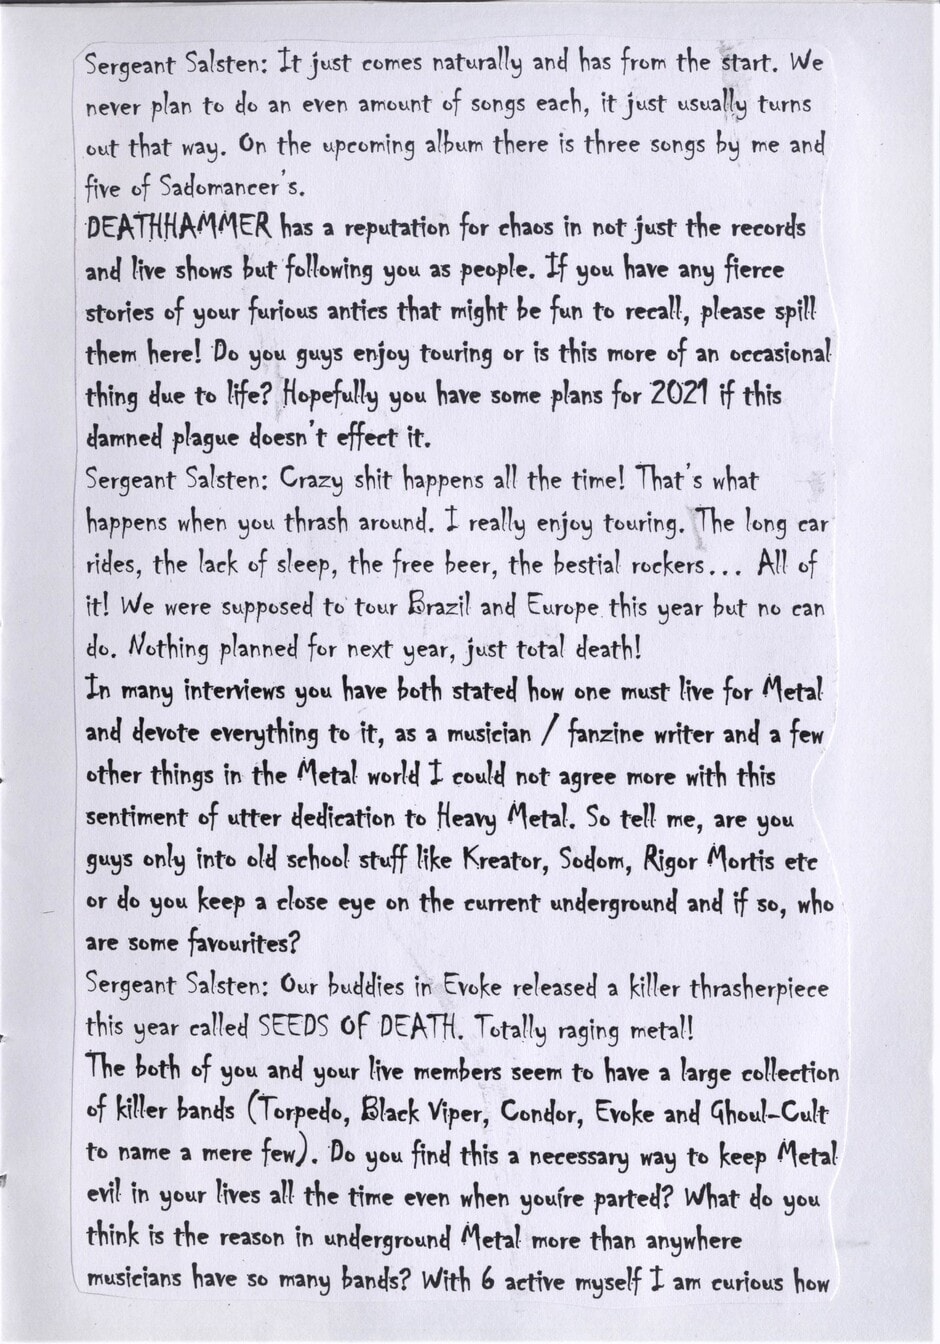 Sergeant Salsten: It just comes naturally and has from the start. We
never plan to do an even amount of songs each, it just usually turns
out that way. On the upcoming album there is three songs by me and
five of Sadomancer's.
DEATHHAMMER has a reputation for chaos in not just the records
and live shows but following you as people. If you have any fierce
stories of your furious antics that might be fun to recall, please spill
them here! Do you guys enjoy touring or is this more of an occasional
thing due to life? Hopefully you have some plans for 2021 if this
damned plague doesn't effect it.
Sergeant Salsten: Crazy shit happens all the time! That's what
happens when you thrash around. I really enjoy touring. The long car
rides, the lack of sleep, the free beer, the bestial rockers... All of
it! We were supposed to tour Brazil and Europe this year but no can
do. Nothing planned for next year, just total death!
In many interviews you have both stated how one must live for Metal
and devote everything to it, as a musician / fanzine writer and a few
other things in the Metal world I could not agree more with this
sentiment of utter dedication to Heavy Metal. So tell me, are you
guys only into old school stuff like Kreator, Sodom, Rigor Mortis etc
or do you keep a close eye on the current underground and if so, who
are some favourites?
Sergeant Salsten: Our buddies in Evoke released a killer thrasherpiece
this year called SEEDS OF DEATH. Totally raging metal!
The both of you and your live members seem to have a large collection
of killer bands (Torpedo, Black Viper, Condor, Evoke and Ghoul-Cult
to name a mere few). Do you find this a necessary way to keep Metal
evil in your lives all the time even when you're parted? What do you
think is the reason in underground Metal more than anywhere
musicians have so many bands? With 6 active myself I am curious how